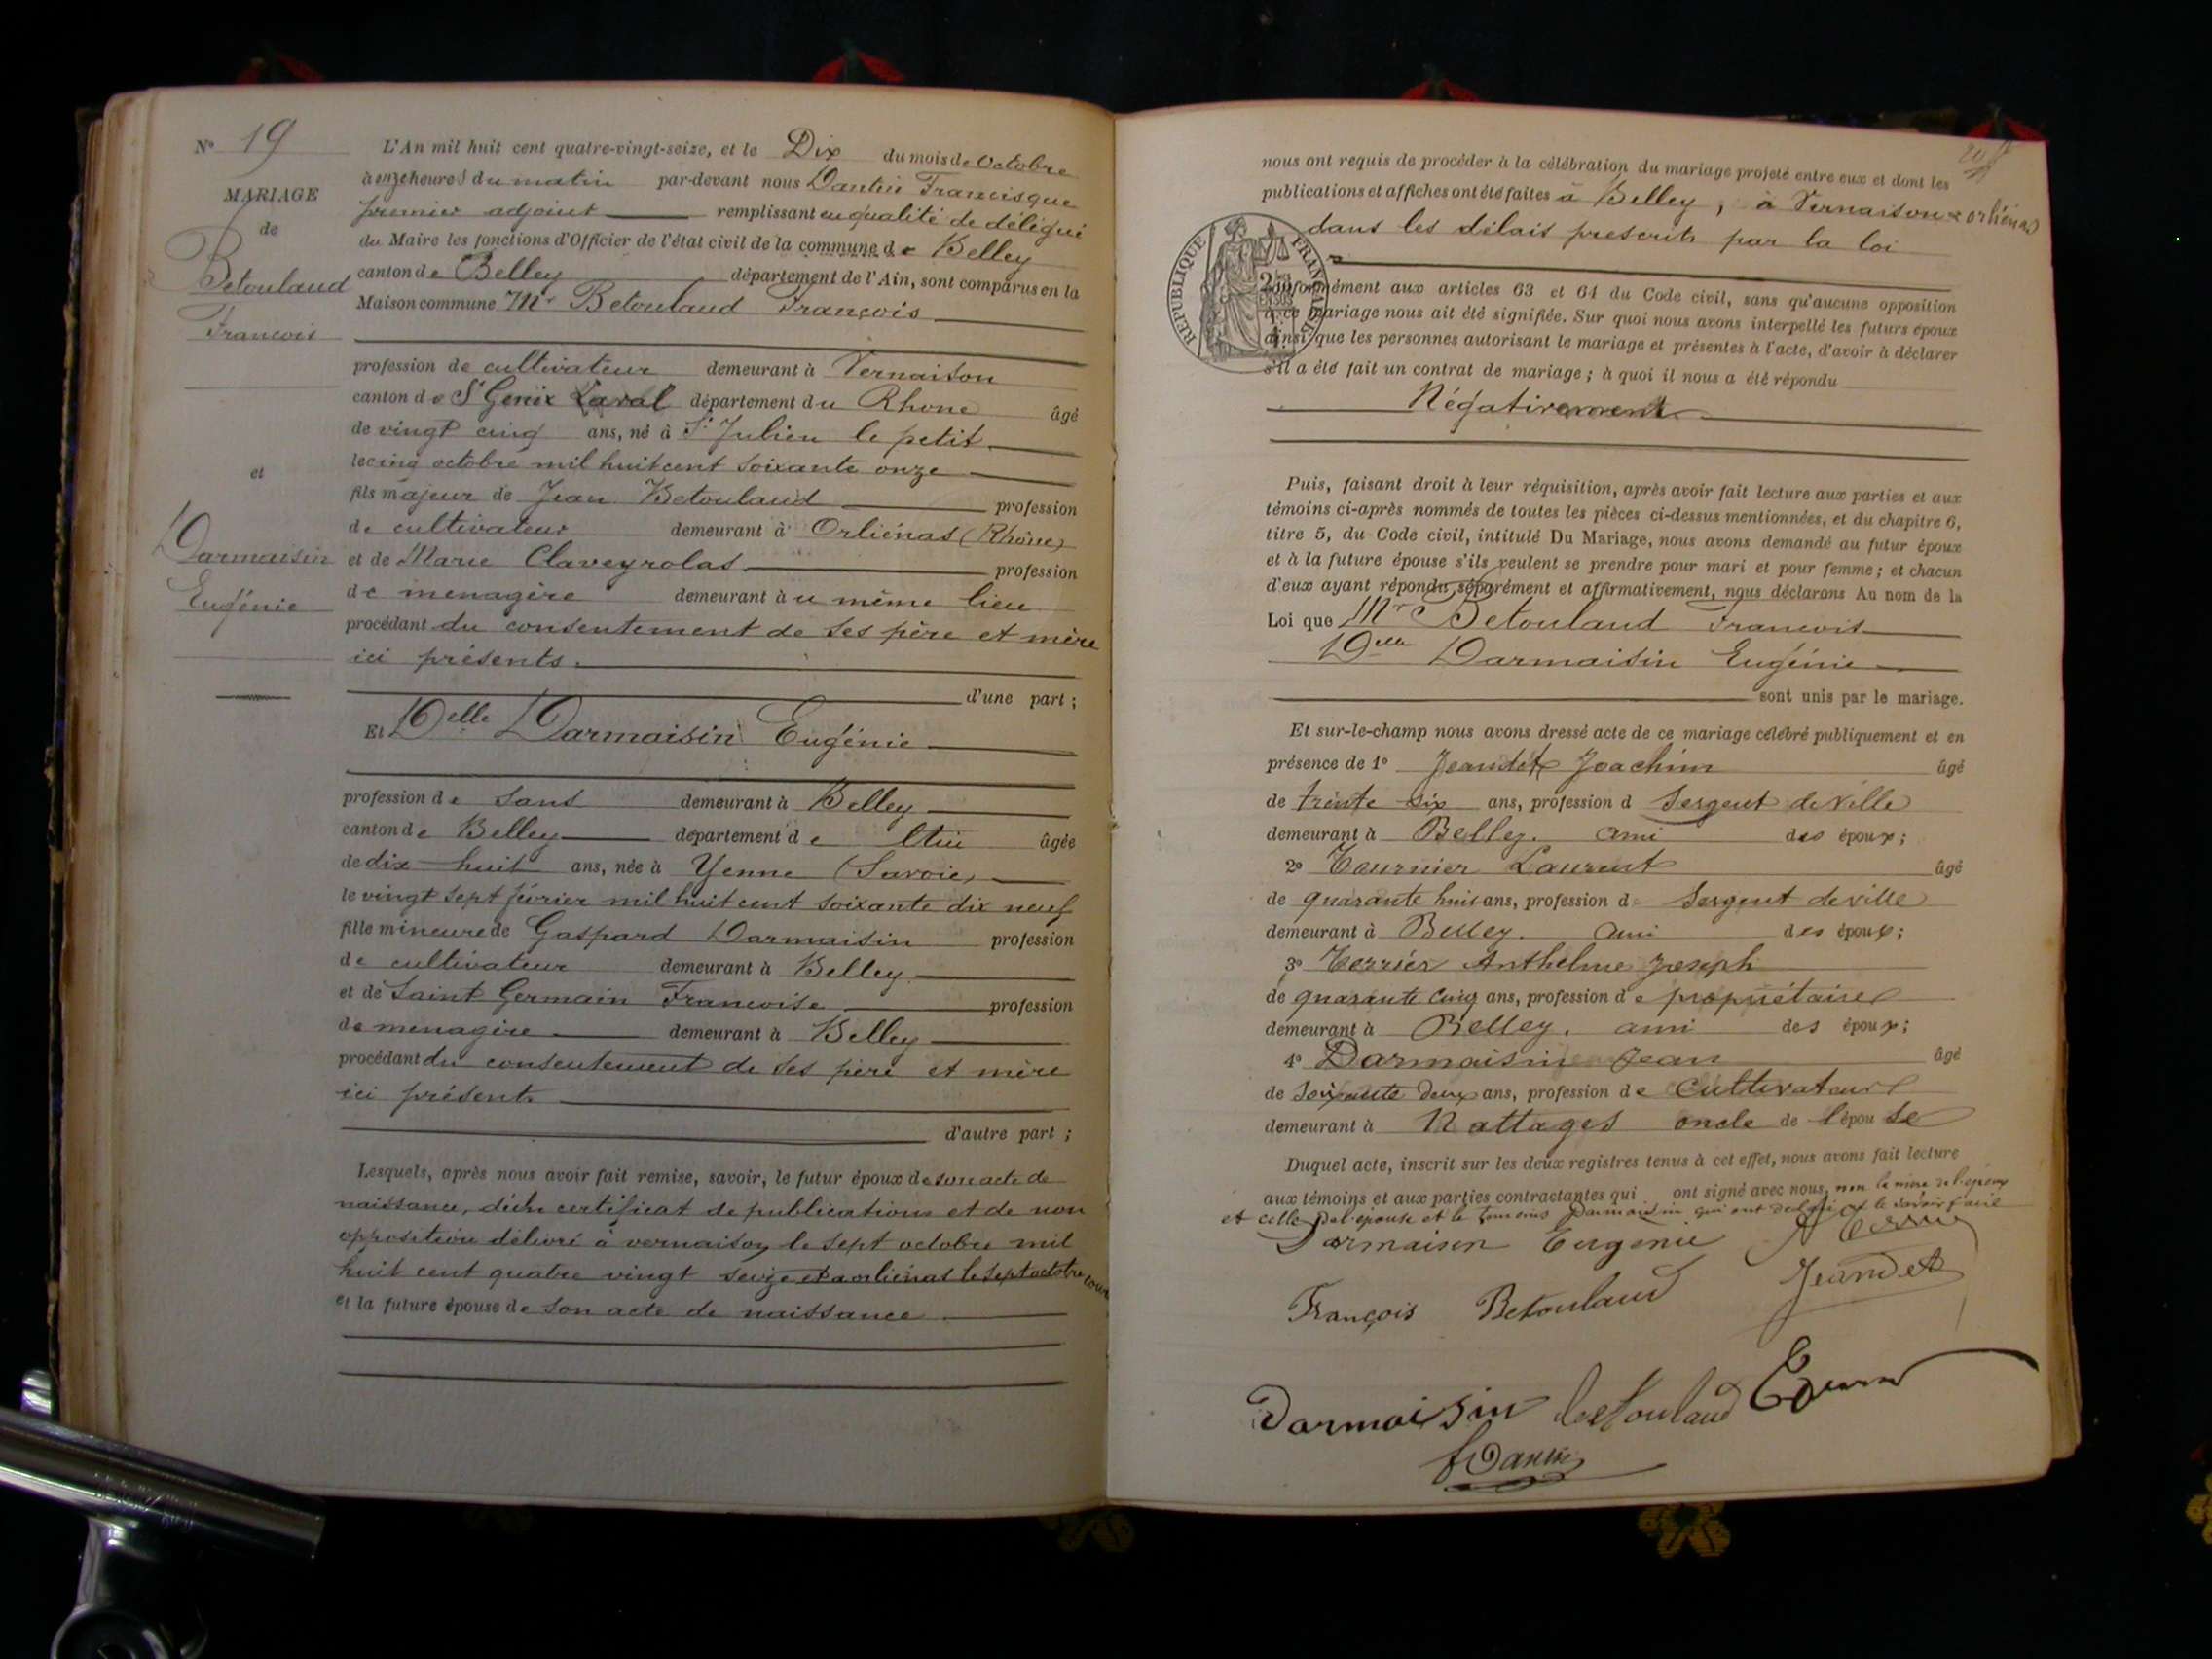 N° 19
MARIAGE
de
Betouland
François
et
Darmaisin
Eugénie
L'An mil huit cent quatre-vingt-seize, et le Dix du mois de Octobre
à onze heures du matin par-devant nous Dantin Francisque
premier adjoint remplissant en qualité de délégué
du Maire les fonctions d'Officier de l'état civil de la commune de Belley
canton de Belley département de l'Ain, sont comparus en la
Maison commune Mr Betouland François
profession de cultivateur demeurant à Vernaison
canton de St Genix Laval département du Rhone âgé
de vingt cinq ans, né à St Julien le petit
le cinq octobre mil huit cent soixante onze
fils majeur de Jean Betouland profession
de cultivateur demeurant à Orliénas (Rhône)
et de Marie Claveyrolas profession
de menagère demeurant à u même lieu
procédant du consentement de ses père et mère
ici présents.
d'une part ;
Et Delle Darmaisin Eugénie
profession de sans demeurant à Belley
canton de Belley département de l'Ain âgée
de dix huit ans, née à Yenne (Savoie)
le vingt sept février mil huit cent soixante dix neuf
fille mineure de Gaspard Darmaisin profession
de cultivateur demeurant à Belley
et de Saint Germain Francoise profession
de menagère demeurant à Belley
procédant du consentement de ses père et mère
ici présents
d'autre part ;
Lesquels, après nous avoir fait remise, savoir, le futur époux de son acte de
naissance, certificat de publications et de non
opposition délivré à vernaison le sept octobre mil
huit cent quatre vingt seize et a orliénas le sept octobre
et la future épouse de son acte de naissance
nous ont requis de procéder à la célébration du mariage projeté entre eux et dont les
publications et affiches ont été faites à Belley, à Vernaison & orliénas
dans les délais prescrits par la loi
REPUBLIQUE FRANÇAISE
Conformément aux articles 63 et 64 du Code civil, sans qu'aucune opposition
à ce mariage nous ait été signifiée. Sur quoi nous avons interpellé les futurs époux
ainsi que les personnes autorisant le mariage et présentes à l'acte, d'avoir à déclarer
s'il a été fait un contrat de mariage ; à quoi il nous a été répondu
Négativement
Puis, faisant droit à leur réquisition, après avoir fait lecture aux parties et aux
témoins ci-après nommés de toutes les pièces ci-dessus mentionnées, et du chapitre 6,
titre 5, du Code civil, intitulé Du Mariage, nous avons demandé au futur époux
et à la future épouse s'ils veulent se prendre pour mari et pour femme ; et chacun
d'eux ayant répondu séparément et affirmativement, nous déclarons Au nom de la
Loi que Mr Betouland Francois
Delle Darmaisin Eugénie
sont unis par le mariage.
Et sur-le-champ nous avons dressé acte de ce mariage célébré publiquement et en
présence de 1° Jeandet Joachim âgé
de trente six ans, profession d Sergent de ville
demeurant à Belley. ami des époux ;
2° Tournier Laurent âgé
de quarante huit ans, profession d Sergent de ville
demeurant à Belley. ami des époux ;
3° Terrier Anthelme Joseph
de quarante cinq ans, profession de propriétaire
demeurant à Belley. ami des époux ;
4° Darmaisin Jean âgé
de soixante deux ans, profession de Cultivateur
demeurant à Nattages oncle de l'épouse
Duquel acte, inscrit sur les deux registres tenus à cet effet, nous avons fait lecture
aux témoins et aux parties contractantes qui ont signé avec nous, non la mère de l'époux
et celle de l'épouse et le témoins Darmaisin qui ont déclaré ne le savoir faire
Darmaisin Eugenie
François Betouland Jeandet
Darmaisin Betouland
Dantin